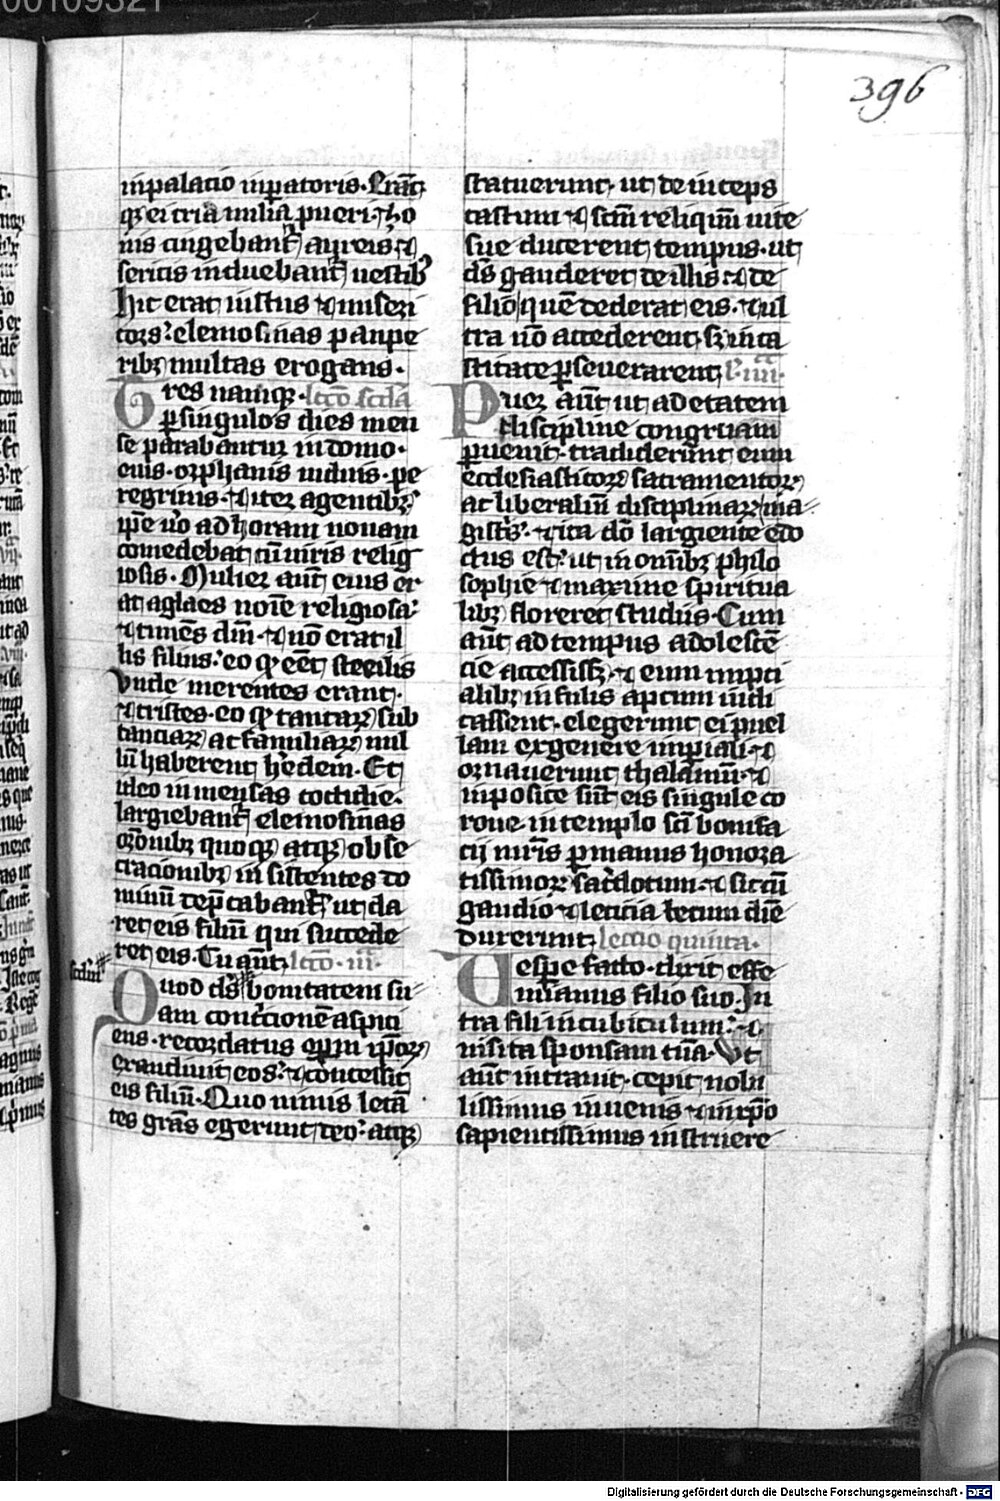 396
in palacio inperatoris. Erāt
qꝫ ei tria milia pueri ꝗ zo
nis cingebant᷑ aureis ⁊
sericis induebant᷑ uestibꝰ
Hic erat iustus ⁊ miseri
cors: elemosinas paupe
ribꝫ multas erogans.
Tres namqꝫ. lcc̄o scd̄a
ꝑ singulos dies men
se parabantur in domo.
eius. orphanis uiduis. pe
regrinis. ⁊ iter agentibꝫ.
ip̄e u͛o ad horam nonam
comedebat cū uiris relig
iosis. Mulier aūt eius er
at aglaes noīe religiosa:
⁊ timēs dm̄. ⁊ nō erat il
lis filius. eo qꝫ eēt sterilis
Vnde merentes erant.
⁊ tristes. eo ꝙ tantaꝝ sub
stanciaꝝ ac familiaꝝ nul
lū haberent hedem. Et
ideo inmensas cottidie.
largiebant᷑ elemosinas
or̄onibꝫ quoqꝫ atqꝫ obse
cracionibꝫ insistentes do
minū dep̄cabant᷑ ut da
ret eis filiū qui succede
ret eis. Tu aūt. lcc̄o. iii.
Quod
dn̄s bonitatem su
am cont͛cionē aspici
ens. recordatus
ip̄oꝝ
exaudiuit eos: ⁊ concessit
eis filiū. Quo minus letā
tes grās egerunt deo. atqꝫ
statuerunt. ut deinceps
castum ⁊ scm̄ reliquū uite
sue ducerent tempus. ut
dn̄s gauderet de illis. ⁊ de
filio quē dederat eis. ⁊ ul
tra nō accederent. sꝫ in ca
stitate ꝑseuerarent. l. iiii.
Puer aūt ut ad etatem
discipline congruam
ꝑuenit. tradiderunt eum
ecclesiasticoꝝ sacramentoꝝ
ac liberaliū disciplinaꝝ ma
gist͛s. ⁊ ita dō largiente edo
ctus est. ut in om̄ibꝫ philo
sophie ⁊ maxime spiritua
libꝫ floreret studiis. Cum
aūt ad tempus adolescē
cie accessissꝫ. ⁊ eum nupci
alibꝫ infulis aptum iudi
cassent. elegerunt ei puel
lam ex genere inꝑiali. ⁊
ornauerunt thalamū. ⁊
inposite sūt eis singule co
rone. in templo sc̄i bonifa
cij mr̄is ꝑ manus honora
tissimoꝝ sac͛dotum. ⁊ sic cū
gaudio ⁊ leticia letum diē
duxerunt. leccio quinta.
Uespe facto. dixit effe
mianus filio suo. In
tra fili in cubiculum. ⁊
uisita sponsam tuā. Ut
aūt intrauit. cepit nobi
lissimus iuuenis ⁊ in xp̄o
sapientissimus instruere
Digitalisierung gefördert durch die Deutsche Forschungsgemeinschaft - DFG